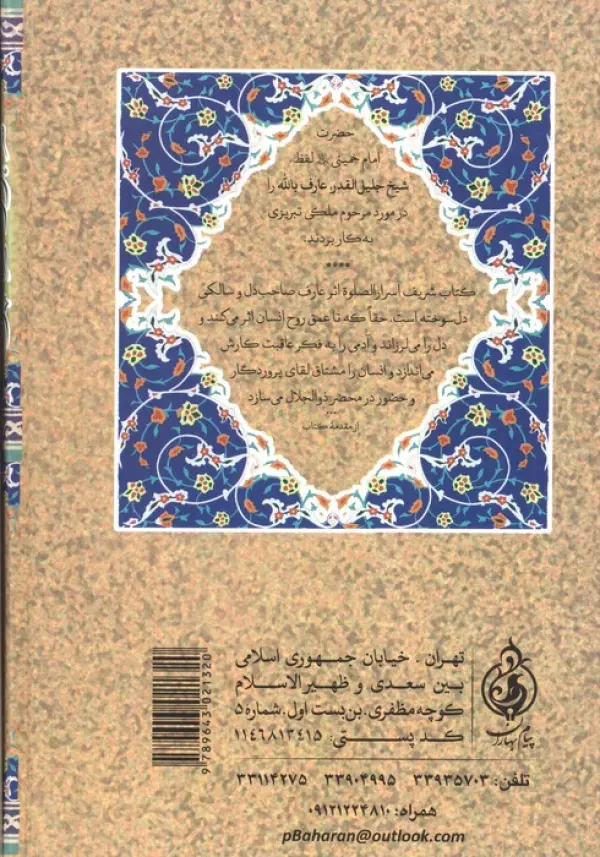 حضرت
امام خمینی ره لفظ
شیخ جلیل القدر، عارف بالله را
در مورد مرحوم ملکی تبریزی
به کار بردند.
****
کتاب شریف اسرارالصلوة اثر عارف صاحب‌دل و سالکی
دل‌سوخته است. حقاً که تا عمق روح انسان اثر می‌کند و
دل را می‌لرزاند و آدمی را به فکر عاقبت کارش
می‌اندازد و انسان را مشتاق لقای پروردگار
و حضور در محضر ذوالجلال می‌سازد
...
از مقدمهٔ کتاب
تهران . خیابان جمهوری اسلامی
بین سعدی و ظهیرالاسلام
کوچه مظفری، بن‌بست اول، شماره ۵
کد پستی: ۱۱۴۶۸۱۳۴۱۵
پیام بهاران
9 789643 021320
تلفن: ۳۳۹۳۵۷۰۳ ۳۳۹۰۴۹۹۵ ۳۳۱۱۴۲۷۵
همراه: ۰۹۱۲۱۲۲۴۸۱۰
pBaharan@outlook.com